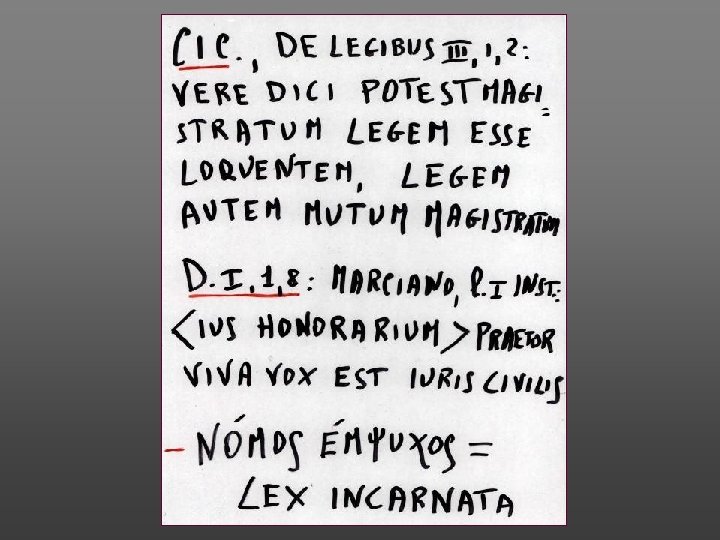 CIC., DE LEGIBUS III, 1, 2:
VERE DICI POTEST MAGI=
STRATUM LEGEM ESSE
LOQUENTEM, LEGEM
AUTEM MUTUM MAGISTRATUM
D. I, 1, 8: MARCIANO, l. I INST.:
<IUS HONORARIUM> PRAETOR
VIVA VOX EST IURIS CIVILIS
- NÓMOS ÉMΨUχOS =
LEX INCARNATA